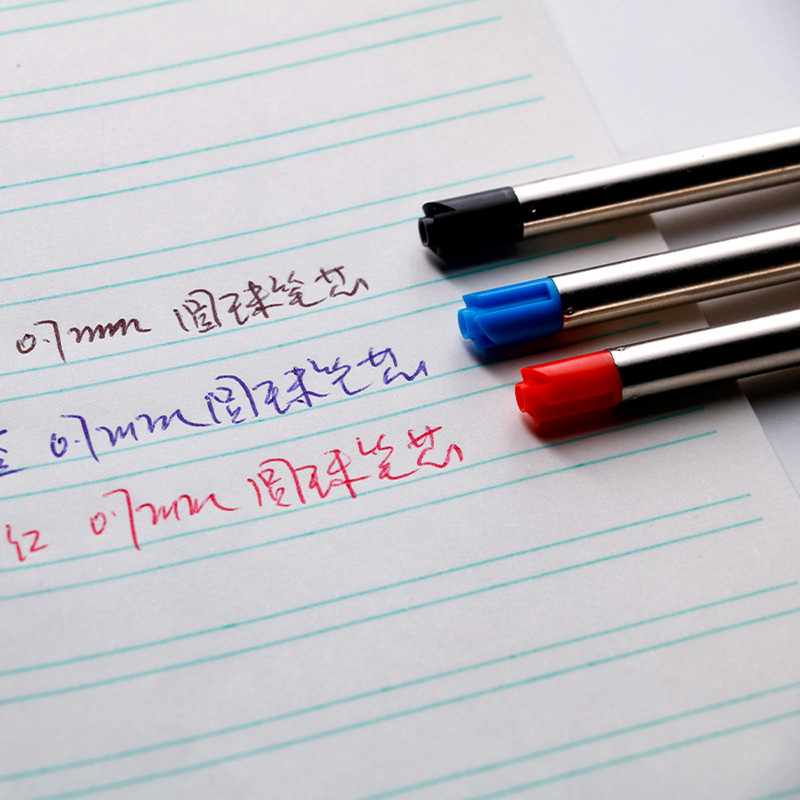 0.7mm 圆球笔芯
0.7mm 圆球笔芯
红 0.7mm 圆球笔芯